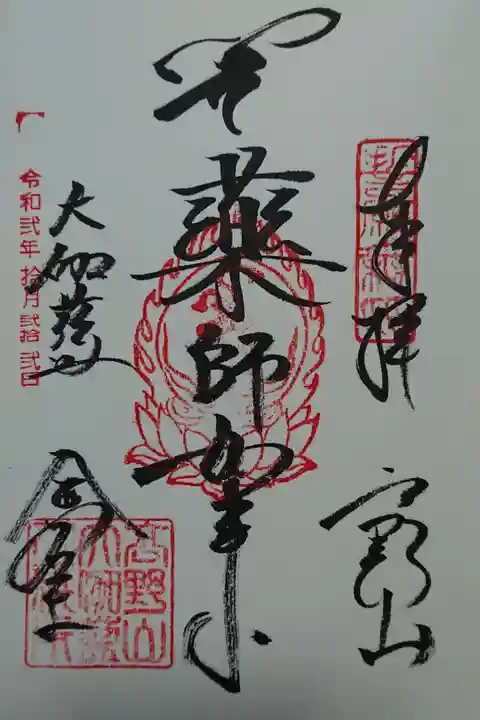 奉拝
高野山
薬師如来
大伽藍
金堂
令和弐年 拾月 弐拾 弐日
高野山
大伽藍